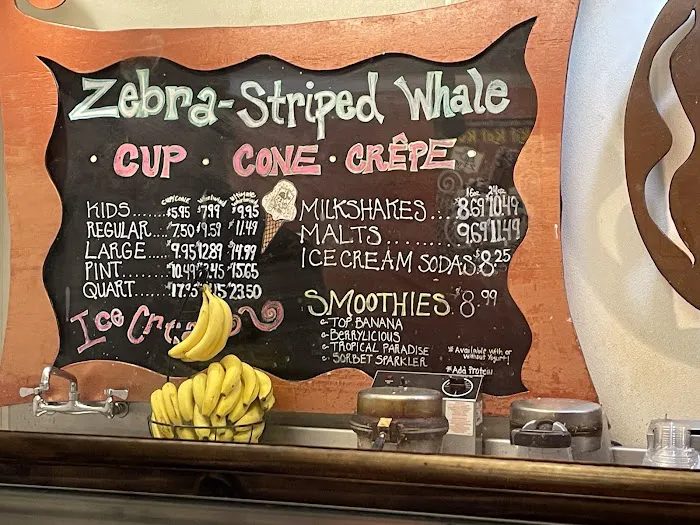 Zebra-Striped Whale
• CUP • CONE • CRÊPE •
CUP/CONE
KIDS......$5.95 $7.99 $9.95
REGULAR...$7.50 $9.59 $11.49
LARGE.....$9.95 12.89 $14.99
PINT......$10.49 $15.65
QUART..... $23.50
Ice
16oz. 24oz.
MILKSHAKES... 8.69 10.49
MALTS........ 9.69 11.49
ICE CREAM SODAS $8.25
SMOOTHIES $8.99
TOP BANANA
BERRYLICIOUS
TROPICAL PARADISE
SORBET SPARKLER
*Available with or
without Yogurt!
*Add Protein